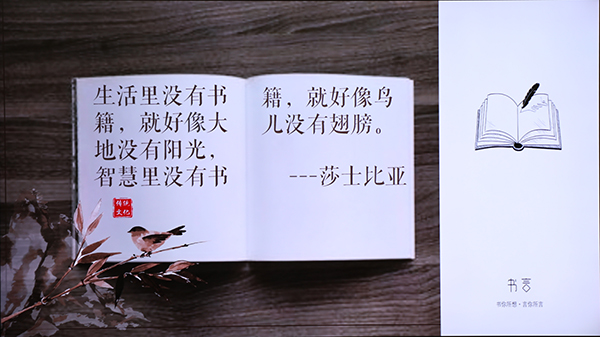 生活里没有书
籍，就好像大
地没有阳光，
智慧里没有书
籍，就好像鸟
儿没有翅膀。
---莎士比亚
传统
文化
书言
书你所想·言你所言